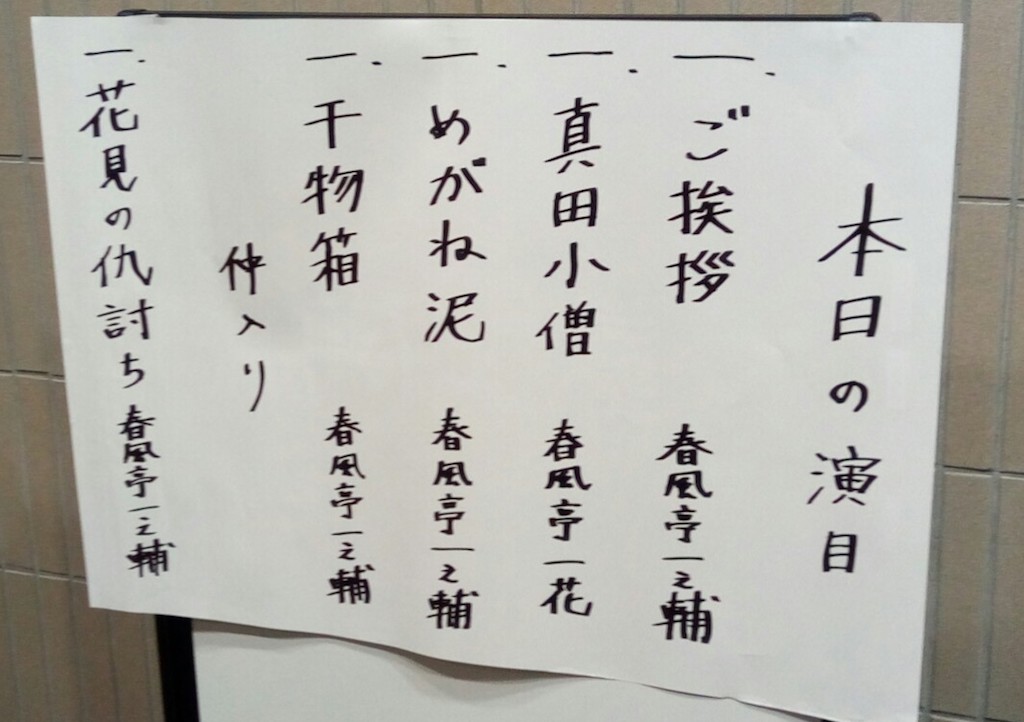 本日の演目
一. ご挨拶 春風亭一之輔
一. 真田小僧 春風亭一花
一. めがね泥 春風亭一之輔
一. 干物箱 春風亭一之輔
仲入り
一. 花見の仇討ち 春風亭一之輔